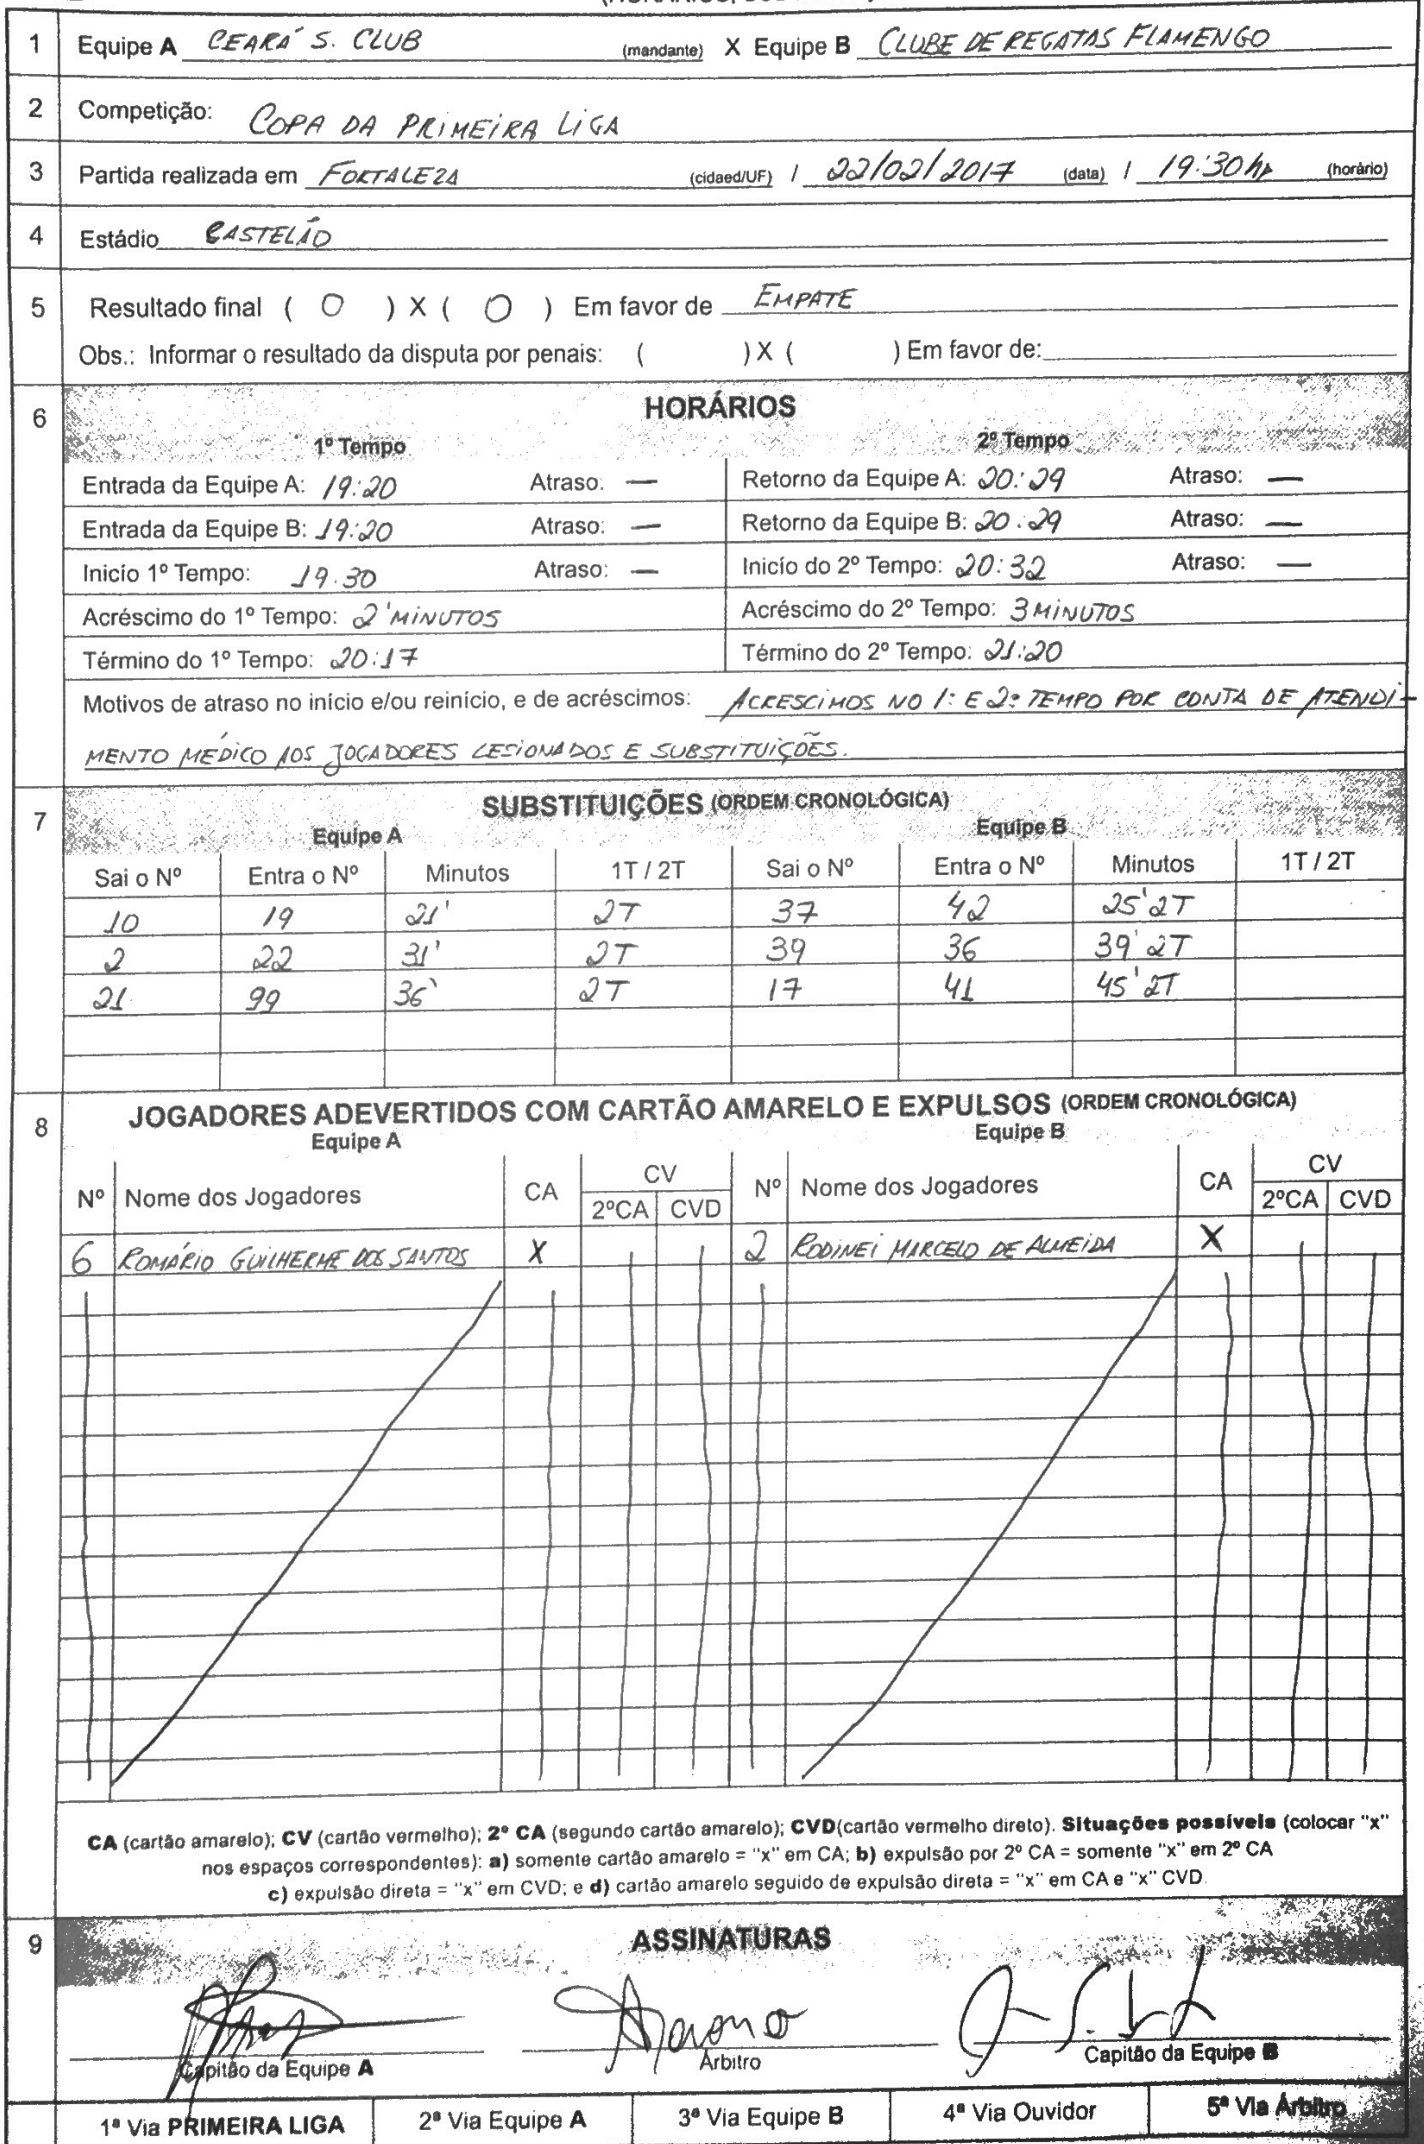 1 Equipe A CEARÁ S. CLUB (mandante) X Equipe B CLUBE DE REGATAS FLAMENGO
2 Competição: COPA DA PRIMEIRA LIGA
3 Partida realizada em FORTALEZA (cidaed/UF) / 22/02/2017 (data) / 19:30 (horário)
4 Estádio CASTELÃO
5 Resultado final ( 0 ) X ( 0 ) Em favor de EMPATE
Obs.: Informar o resultado da disputa por penais: ( ) X ( ) Em favor de:
6 HORÁRIOS
1º Tempo 2º Tempo
Entrada da Equipe A: 19:20 Atraso: — Retorno da Equipe A: 20:29 Atraso: —
Entrada da Equipe B: 19:20 Atraso: — Retorno da Equipe B: 20:29 Atraso: —
Inicío 1º Tempo: 19:30 Atraso: — Inicío do 2º Tempo: 20:32 Atraso: —
Acréscimo do 1º Tempo: 2' MINUTOS Acréscimo do 2º Tempo: 3 MINUTOS
Término do 1º Tempo: 20:17 Término do 2º Tempo: 21:20
Motivos de atraso no início e/ou reinício, e de acréscimos: ACRESCIMOS NO 1º E 2º TEMPO POR CONTA DE ATENDI-
MENTO MÉDICO AOS JOGADORES LESIONADOS E SUBSTITUIÇÕES.
7 SUBSTITUIÇÕES (ORDEM CRONOLÓGICA)
Equipe A Equipe B
Sai o Nº Entra o Nº Minutos 1T / 2T Sai o Nº Entra o Nº Minutos 1T / 2T
10 19 21' 2T 37 42 25' 2T
2 22 31' 2T 39 36 39' 2T
21 99 36' 2T 17 41 45' 2T
8 JOGADORES ADEVERTIDOS COM CARTÃO AMARELO E EXPULSOS (ORDEM CRONOLÓGICA)
Equipe A Equipe B
Nº Nome dos Jogadores CA CV 2ºCA CVD Nº Nome dos Jogadores CA CV 2ºCA CVD
6 ROMÁRIO GUILHERME DOS SANTOS X 2 RODINEI MARCELO DE ALMEIDA X
CA (cartão amarelo); CV (cartão vermelho); 2º CA (segundo cartão amarelo); CVD(cartão vermelho direto). Situações possíveis (colocar "x"
nos espaços correspondentes): a) somente cartão amarelo = "x" em CA; b) expulsão por 2º CA = somente "x" em 2º CA
c) expulsão direta = "x" em CVD; e d) cartão amarelo seguido de expulsão direta = "x" em CA e "x" CVD.
9 ASSINATURAS
Capitão da Equipe A Árbitro Capitão da Equipe B
1ª Via PRIMEIRA LIGA 2ª Via Equipe A 3ª Via Equipe B 4ª Via Ouvidor 5ª Via Árbitro